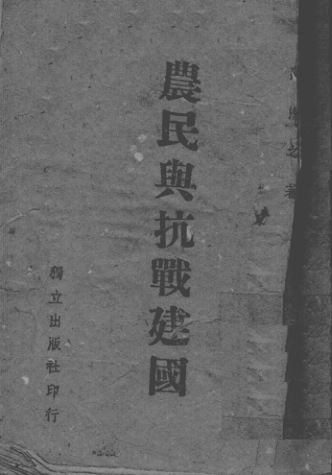 著
農民與抗戰建國
獨立出版社印行